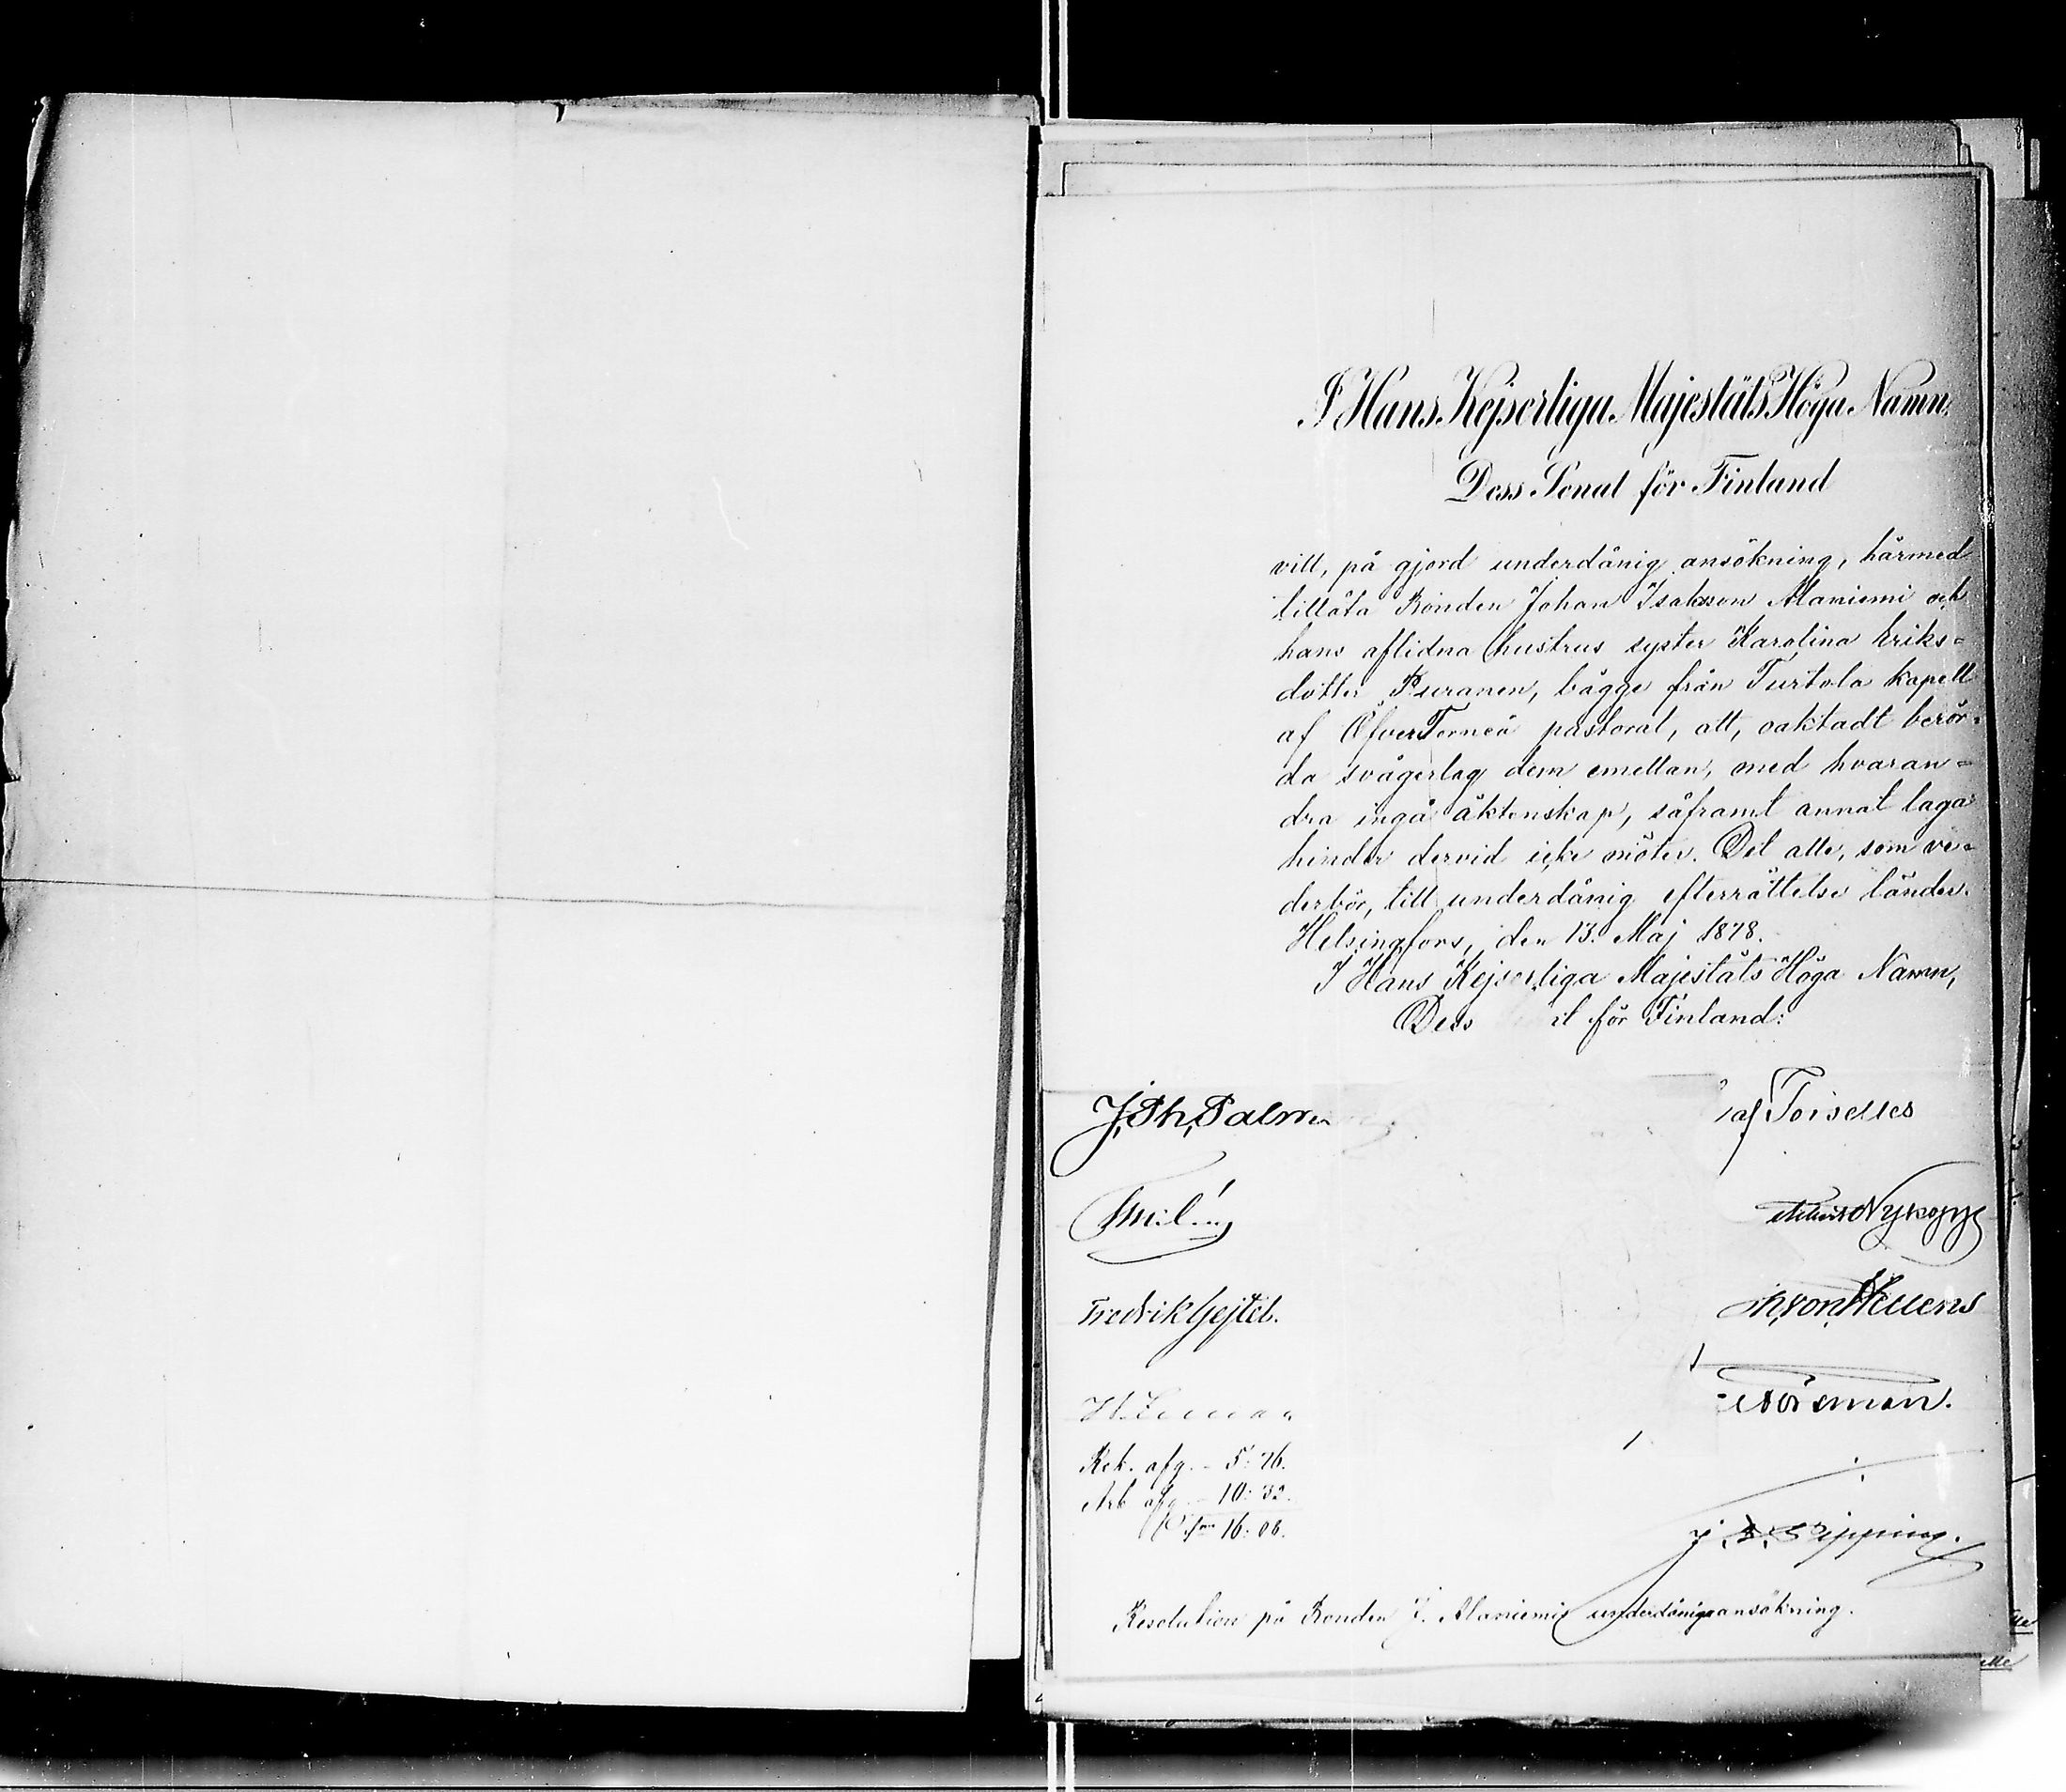 I Hans Kejserliga Majestäts Höga Namn,
Dess Senat för Finland
vill, på gjord underdånig ansökning, härmed
tillåta Bonden Johan Isaksson Alaniemi och
hans aflidna hustrus syster Karolina Eriks=
dotter Puranen, bägge från Turtola kapell
af ÖfverTorneå pastorat, att, oaktadt berör=
da svågerlag dem emellan, med hvaran=
dra ingå äktenskap, såframt annat laga
hinder dervid icke möter. Det alle, som ve=
derbör, till underdånig efterrättelse länder.
Helsingfors, den 13. Maj 1878.
I Hans Kejserliga Majestäts Höga Namn,
Dess t för Finland:
J. Ph. Palm
af Forselles
Nykopp
Fredrik Gejtel.
von Hellens
Norsman.
Rek. afg. - 5: 76.
Ark. afg. - 10: 32.
16: 08.
Resolution på Bonden J. Alaniemis underdåniga ansökning.